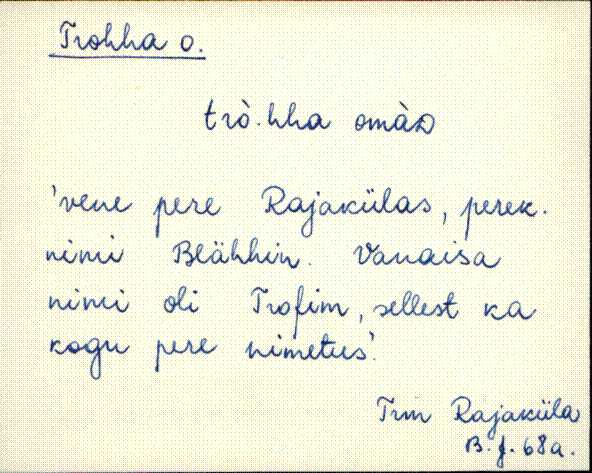 Trohha o.
trò·hha omàᴅ
'vene pere Rajakülas, perek.
nimi Blähhin. Vanaisa
nimi oli Trofim, sellest ka
kogu pere nimetus'.
Trm Rajaküla
B. J. 68a.